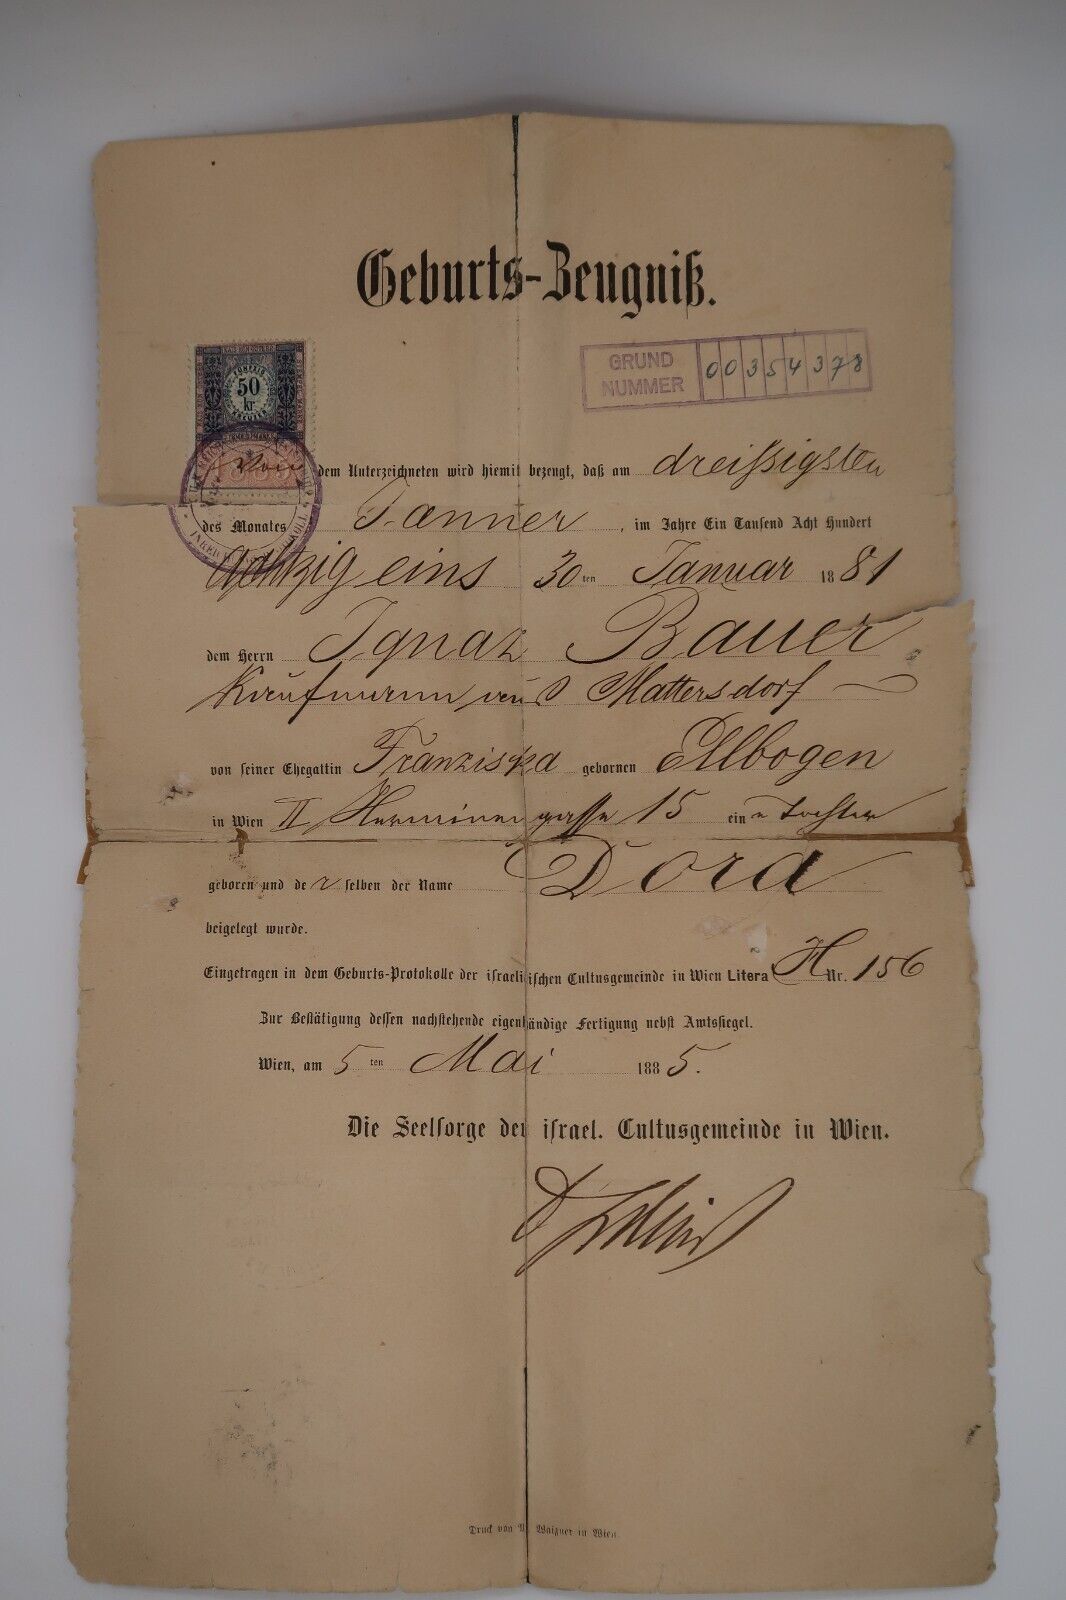 Geburts-Zeugniß.
50
kr
GRUND
NUMMER
00354378
Von dem Unterzeichneten wird hiemit bezeugt, daß am dreißigsten
des Monates Jänner, im Jahre Ein Tausend Acht Hundert
Achtzig eins 30ten Januar 1881
dem Herrn Ignaz Bauer
Kaufmann aus Mattersdorf
von seiner Ehegattin Franziska gebornen Ellbogen
in Wien II. Herminengasse 15 eine Tochter
geboren und der selben der Name Dora
beigelegt wurde.
Eingetragen in dem Geburts-Protokolle der israelitischen Cultusgemeinde in Wien Litera H Nr. 156
Zur Bestätigung dessen nachstehende eigenhändige Fertigung nebst Amtssiegel.
Wien, am 5ten Mai 1885.
Die Seelsorge der israel. Cultusgemeinde in Wien.
Druck von Waizner in Wien